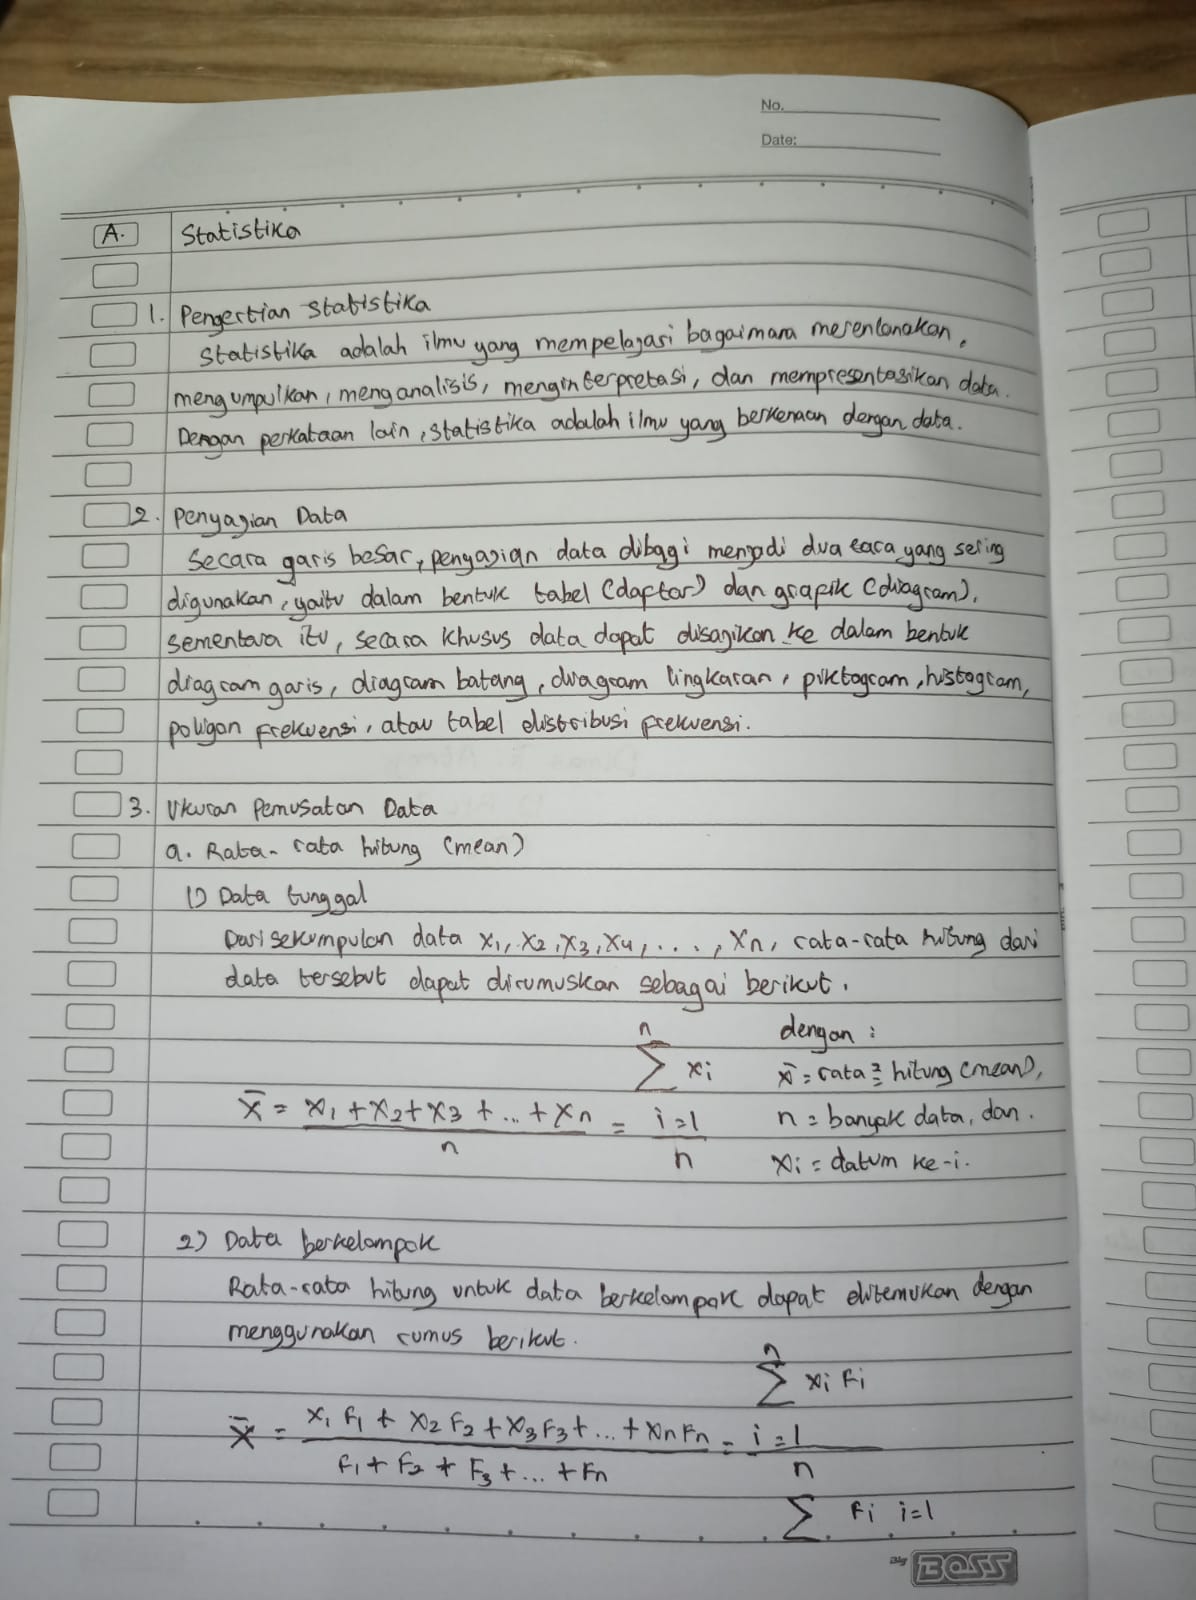 No.
Date:
A. Statistika
1. Pengertian statistika
statistika adalah ilmu yang mempelajari bagaimana merencanakan,
mengumpulkan, menganalisis, menginterpretasi, dan mempresentasikan data.
Dengan perkataan lain, statistika adalah ilmu yang berkenaan dengan data.
2. Penyajian Data
Secara garis besar, penyajian data dibagi menjadi dua cara yang sering
digunakan, yaitu dalam bentuk tabel (daftar) dan grafik (diagram).
sementara itu, secara khusus data dapat disajikan ke dalam bentuk
diagram garis, diagram batang, diagram lingkaran, piktogram, histogram,
poligon frekuensi, atau tabel distribusi frekuensi.
3. Ukuran Pemusatan Data
a. Rata-rata hitung (mean)
1) Data tunggal
Dari sekumpulan data x₁, x₂, x₃, x₄, ..., xₙ, rata-rata hitung dari
data tersebut dapat dirumuskan sebagai berikut.
n dengan :
∑ xi x̄ = rata² hitung (mean),
x̄ = x₁ + x₂ + x₃ + ... + xₙ = i=1 n = banyak data, dan.
n n xi = datum ke-i.
2) Data berkelompok
Rata-rata hitung untuk data berkelompok dapat ditemukan dengan
menggunakan rumus berikut.
n
∑ xi Fi
x̄ = x₁ F₁ + x₂ F₂ + x₃ F₃ + ... + xₙ Fₙ = i=1
F₁ + F₂ + F₃ + ... + Fₙ n
∑ Fi i=1
By BOSS